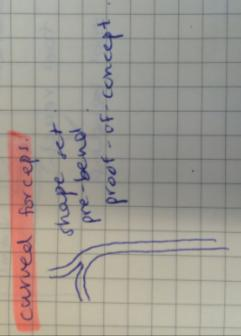 curved forceps!
shape set
pre-bend
proof-of-concept.